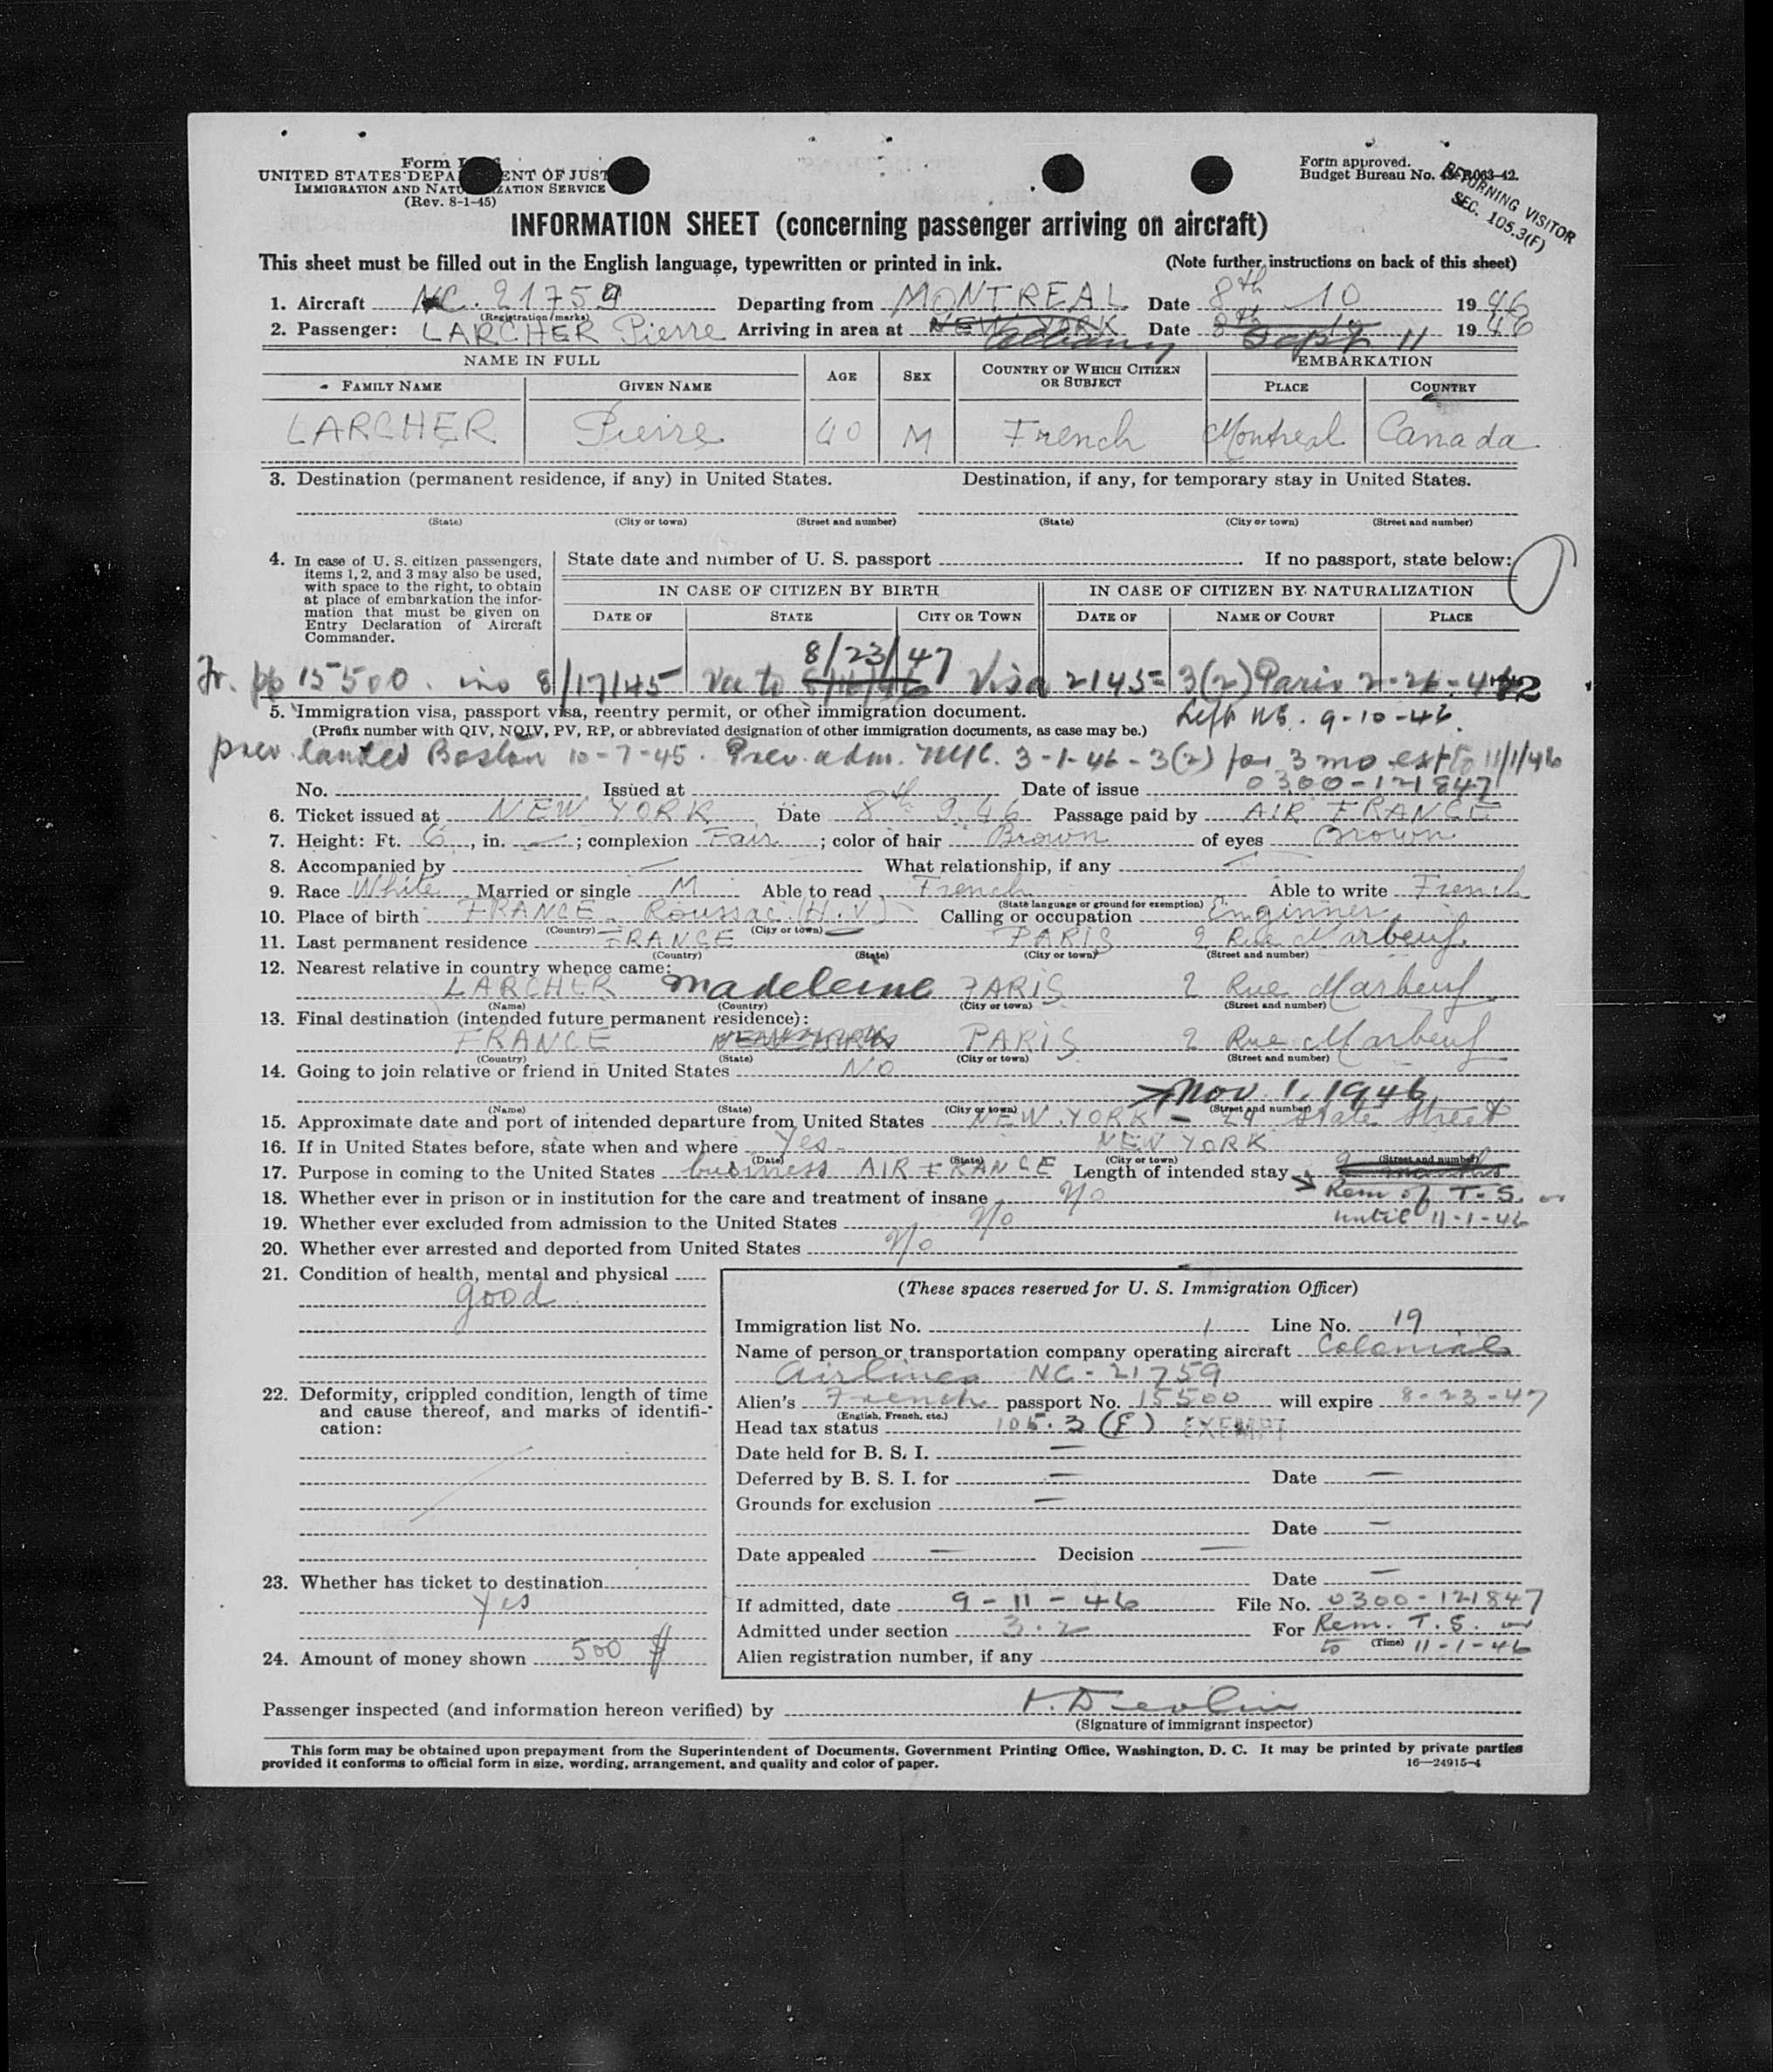 Form
UNITED STATES DEPA ENT OF JUST
IMMIGRATION AND NATU ZATION SERVICE
(Rev. 8-1-45)
Form approved.
Budget Bureau No. R063-42.
RETURNING VISITOR
SEC. 105.3(F)
INFORMATION SHEET (concerning passenger arriving on aircraft)
This sheet must be filled out in the English language, typewritten or printed in ink. (Note further instructions on back of this sheet)
1. Aircraft NC. 21759 Departing from MONTREAL Date 8th 10 1946
(Registration marks)
2. Passenger: LARCHER Pierre Arriving in area at NEW YORK Date 8th 1946
Albany Sept 11
NAME IN FULL AGE SEX COUNTRY OF WHICH CITIZEN OR SUBJECT EMBARKATION
FAMILY NAME GIVEN NAME PLACE COUNTRY
LARCHER Pierre 40 M French Montreal Canada
3. Destination (permanent residence, if any) in United States. Destination, if any, for temporary stay in United States.
(State) (City or town) (Street and number) (State) (City or town) (Street and number)
4. In case of U. S. citizen passengers, items 1, 2, and 3 may also be used, with space to the right, to obtain at place of embarkation the information that must be given on Entry Declaration of Aircraft Commander.
State date and number of U. S. passport If no passport, state below:
IN CASE OF CITIZEN BY BIRTH IN CASE OF CITIZEN BY NATURALIZATION
DATE OF STATE CITY OR TOWN DATE OF NAME OF COURT PLACE
8/23/47
Fr. pp 15500. iss 8/17/45 Visa 2145 = 3(2) Paris
5. Immigration visa, passport visa, reentry permit, or other immigration document.
Left US. 9-10-46.
(Prefix number with QIV, NQIV, PV, RP, or abbreviated designation of other immigration documents, as case may be.)
prev landed Boston 10-7-45. Prev. adm. NYC. 3-1-46 - 3(2) for 3 mo ext to 11/1/46
0300-121847
No. Issued at Date of issue
6. Ticket issued at NEW YORK Date 8th 9.46 Passage paid by AIR FRANCE
7. Height: Ft. 6, in. — ; complexion Fair ; color of hair Brown of eyes Brown
8. Accompanied by — What relationship, if any —
9. Race White Married or single M Able to read French Able to write French
(State language or ground for exemption)
10. Place of birth FRANCE - Roussac (H.V) Calling or occupation Enginner
(Country) (City or town)
11. Last permanent residence FRANCE PARIS 2 Rue Marbeuf
(Country) (State) (City or town) (Street and number)
12. Nearest relative in country whence came:
LARCHER Madeleine PARIS 2 Rue Marbeuf
(Name) (Country) (City or town) (Street and number)
13. Final destination (intended future permanent residence):
FRANCE NEW YORK PARIS 2 Rue Marbeuf
(Country) (State) (City or town) (Street and number)
14. Going to join relative or friend in United States No
Nov. 1, 1946
(Name) (State) (City or town) (Street and number)
15. Approximate date and port of intended departure from United States NEW YORK - 24 State Street
16. If in United States before, state when and where Yes - NEW YORK
(Date) (State) (City or town) (Street and number)
17. Purpose in coming to the United States business AIR FRANCE Length of intended stay
Rem of T.S. or
18. Whether ever in prison or in institution for the care and treatment of insane No
until 11-1-46
19. Whether ever excluded from admission to the United States No
20. Whether ever arrested and deported from United States No
21. Condition of health, mental and physical
good
22. Deformity, crippled condition, length of time and cause thereof, and marks of identification:
23. Whether has ticket to destination
Yes
24. Amount of money shown 500 $
(These spaces reserved for U. S. Immigration Officer)
Immigration list No. 1 Line No. 19
Name of person or transportation company operating aircraft Colonial
Airlines NC-21759
Alien's French passport No. 15500 will expire 8-23-47
(English, French, etc.)
Head tax status 105.3 (F) EXEMPT
Date held for B. S. I. —
Deferred by B. S. I. for — Date —
Grounds for exclusion —
Date —
Date appealed — Decision —
Date —
If admitted, date 9-11-46 File No. 0300-121847
Admitted under section 3.2 For Rem. T.S. or
(Time) to 11-1-46
Alien registration number, if any
Passenger inspected (and information hereon verified) by
(Signature of immigrant inspector)
This form may be obtained upon prepayment from the Superintendent of Documents, Government Printing Office, Washington, D. C. It may be printed by private parties
provided it conforms to official form in size, wording, arrangement, and quality and color of paper. 16—24915-4